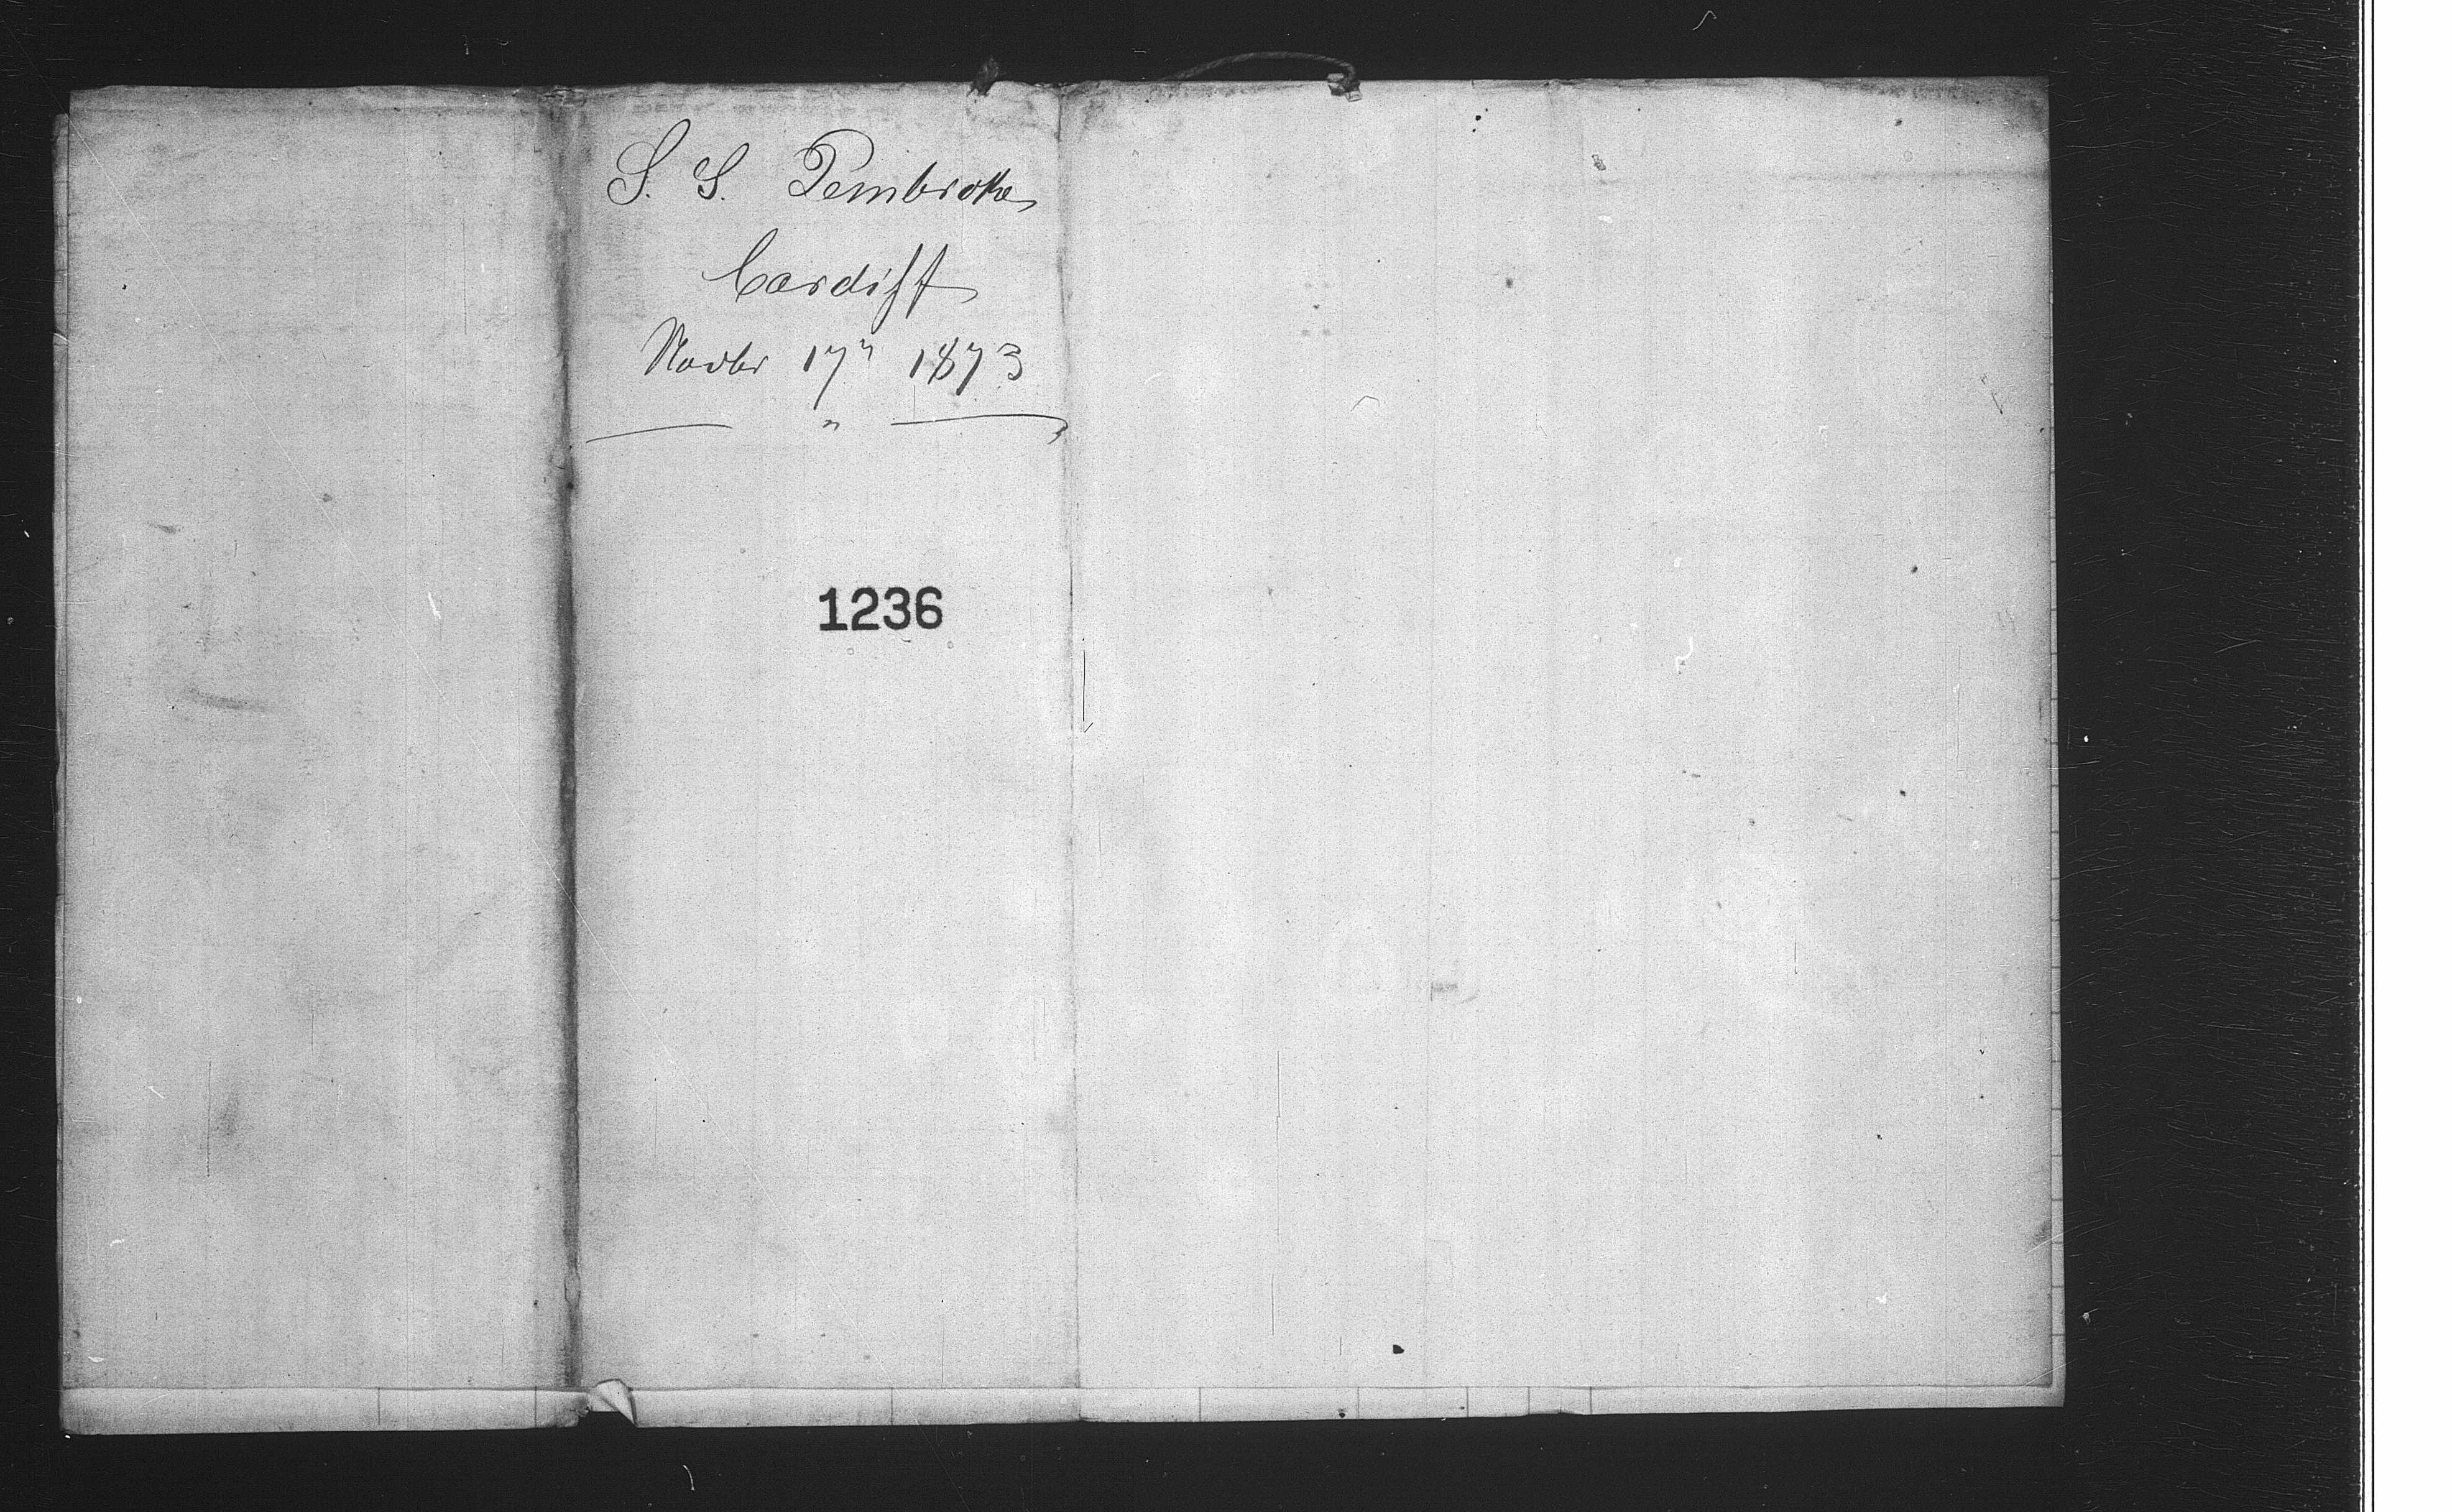 S. S. Pembroke
Cardiff
Novbr 17" 1873
"
1236